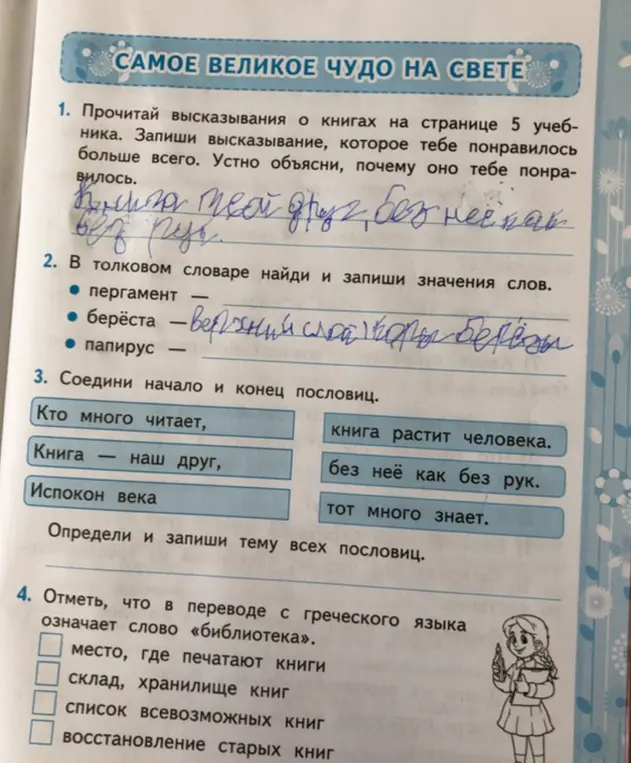 САМОЕ ВЕЛИКОЕ ЧУДО НА СВЕТЕ
1. Прочитай высказывания о книгах на странице 5 учеб-
ника. Запиши высказывание, которое тебе понравилось
больше всего. Устно объясни, почему оно тебе понра-
вилось.
Книга твой друг, без неё как
без рук.
2. В толковом словаре найди и запиши значения слов.
• пергамент —
• берёста — верхний слой коры берёзы
• папирус —
3. Соедини начало и конец пословиц.
Кто много читает, книга растит человека.
Книга — наш друг, без неё как без рук.
Испокон века тот много знает.
Определи и запиши тему всех пословиц.
4. Отметь, что в переводе с греческого языка
означает слово «библиотека».
место, где печатают книги
склад, хранилище книг
список всевозможных книг
восстановление старых книг